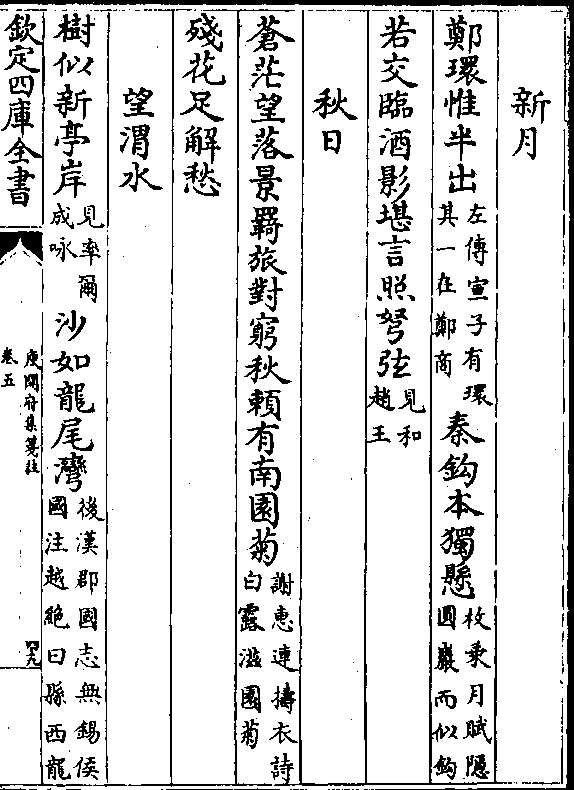 新月
鄭環惟半出左傳宣子有環其一在鄭商秦鈎本獨懸枚乗月賦隱圓巖而似鈎
若交臨酒影堪言照弩弦見和趙王
秋日
蒼茫望落景羇旅對窮秋頼有南園菊謝惠連擣衣詩白露滋園菊
殘花足解愁
望渭水
樹似新亭岸見率爾成咏沙如龍尾灣後漢郡國志無錫侯國注越絶曰縣西龍
欽定四庫全書
庾開府集箋註
卷五
四九